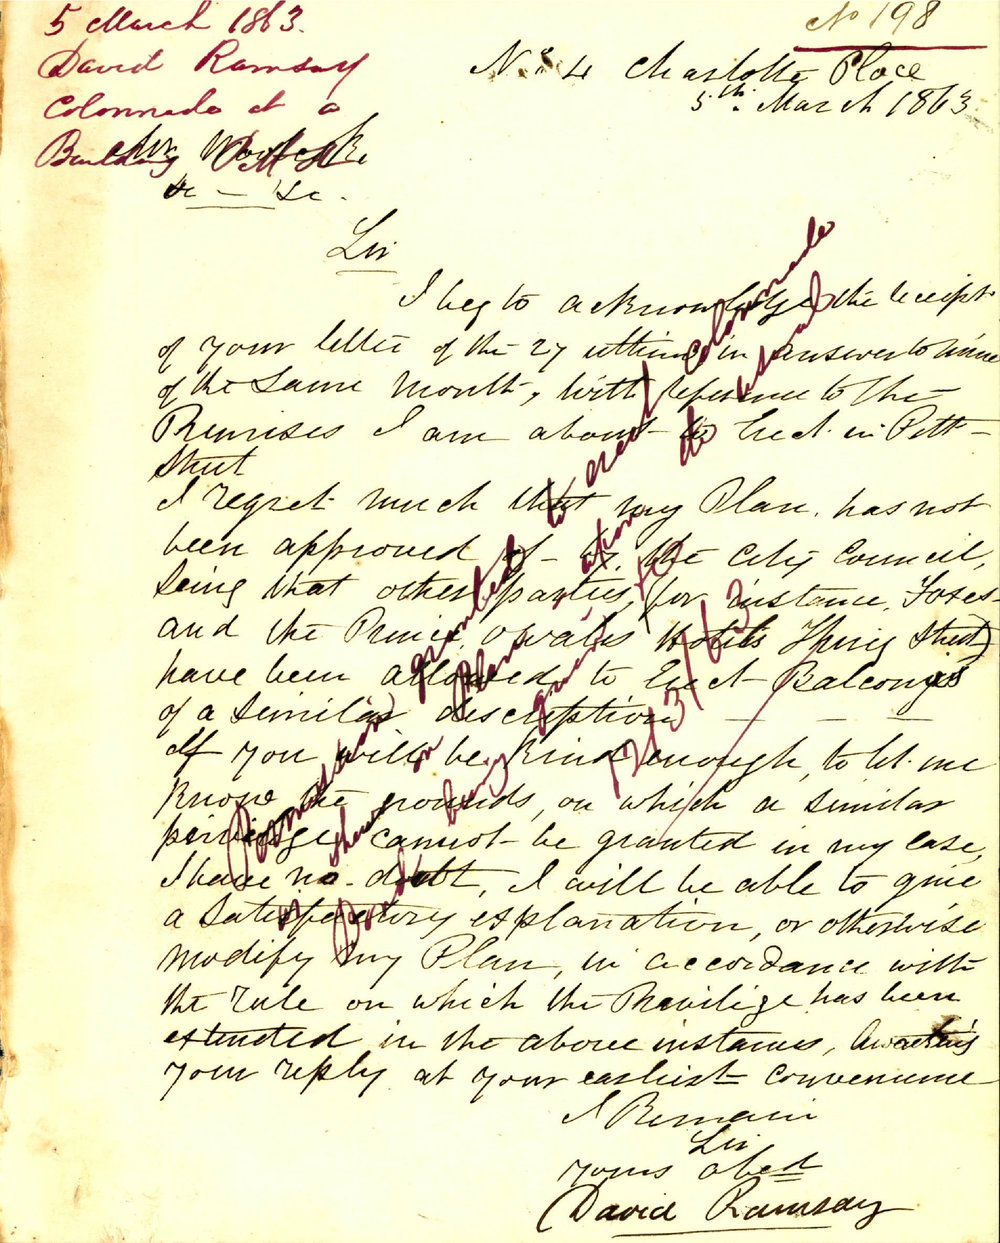 5 March 1863.
David Ramsay
Colonnade at a
Building Pitt St
No 198
No. 4 Charlotte Place
5th. March 1863
Mr Woolcocke
&c — &c.
Sir
I beg to acknowledge the receipt
of your letter of the 27 ultimo in answer to mine
of the Same Month, with reference to the
Premises I am about to Erect in Pitt
Street
I regret much that my Plan has not
been approved of by the City Council,
Seing that other parties, for instance, Toses
and the Prince of Wales Hotels (King Street)
have been allowed to Erect Balconyes
of a similar description — — —
If you will be Kind enough, to let me
Know the grounds, on which a similar
privilege cannot be granted in my case,
I have no doubt, I will be able to give
a Satisfactory explanation, or otherwise
modify my Plan, in accordance with
the rule on which the Privilige has been
extended in the above instances, Awaiting
your reply at your earliest convenience
I Remain
Sir
yours obed
David Ramsay
Permission granted to erect colonnade
as shewn on Plan, upon the usual
Bond being given to
12/3/63